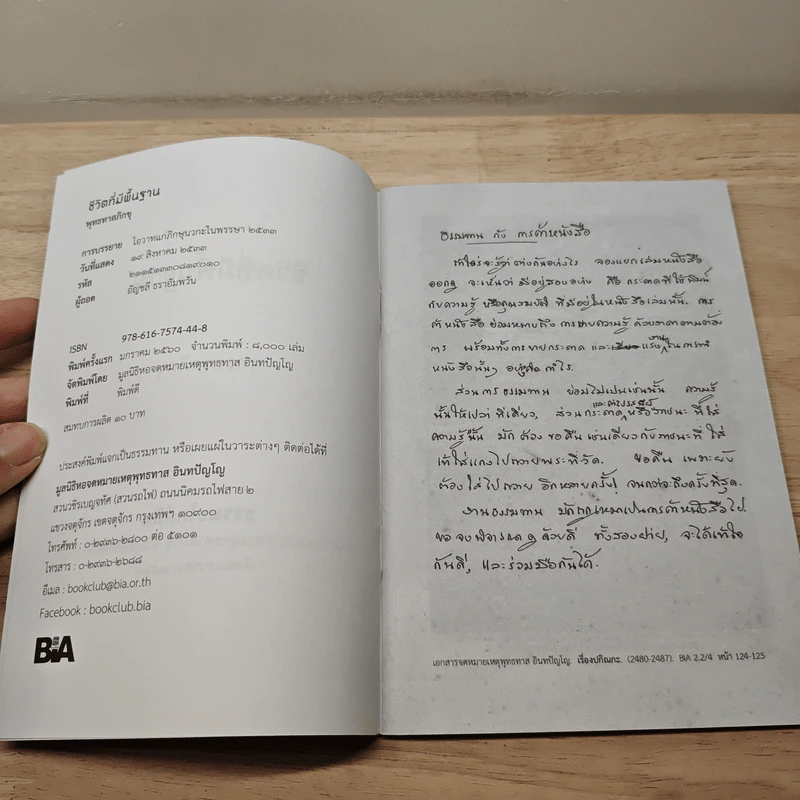 ชีวิตที่มีพื้นฐาน
พุทธทาสภิกขุ
การบรรยาย โอวาทแก่ภิกษุนวกะในพรรษา ๒๕๓๓
วันที่แสดง ๑๙ สิงหาคม ๒๕๓๓
รหัส ๒๑๑๕๑๓๓๐๘๑๙๐๑๐
ผู้ถอด อัญชลี ธราอัมพวัน
ISBN 978-616-7574-44-8
พิมพ์ครั้งแรก มกราคม ๒๕๖๐ จำนวนพิมพ์ : ๘,๐๐๐ เล่ม
จัดพิมพ์โดย มูลนิธิหอจดหมายเหตุพุทธทาส อินทปัญโญ
พิมพ์ที่ พิมพ์ดี
สมทบการผลิต ๑๐ บาท
ประสงค์พิมพ์แจกเป็นธรรมทาน หรือเผยแผ่ในวาระต่างๆ ติดต่อได้ที่
มูลนิธิหอจดหมายเหตุพุทธทาส อินทปัญโญ
สวนวชิรเบญจทัศ (สวนรถไฟ) ถนนนิคมรถไฟสาย ๒
แขวงจตุจักร เขตจตุจักร กรุงเทพฯ ๑๐๙๐๐
โทรศัพท์ : ๐-๒๙๓๖-๒๘๐๐ ต่อ ๕๑๐๑
โทรสาร : ๐-๒๙๓๖-๒๖๘๘
อีเมล : bookclub@bia.or.th
Facebook : bookclub.bia
BIA
ธรรมทาน กับ การค้าหนังสือ
ถ้าใครจะรู้ว่าต่างกันอย่างไร ลองแยกเล่มหนังสือ
ออกดู จะเห็นว่า มีอยู่สองอย่าง คือ กระดาษที่ใช้พิมพ์
กับความรู้ หรือคุณสมบัติ ที่มีอยู่ในหนังสือเล่มนั้น. การ
ค้าหนังสือ ย่อมหมายถึง การขายความรู้ ด้วยราคาตามต้อง
การ พร้อมทั้งการขายกระดาษ และแรงงานในการทำ
หนังสือนั้นๆ อย่างคิดกำไร.
ส่วนการธรรมทาน ย่อมไม่เป็นเช่นนั้น ความรู้
นั้นให้เปล่า ทีเดียว, ส่วนกระดาษและค่าแรง หรือภาชนะ ที่ใส่
ความรู้นั้น มัก ต้อง ขอคืน เช่นเดียวกับภาชนะ ที่ใส่
แกงไปถวายพระที่วัด. ขอคืน เพราะยัง
ต้องใส่ไปถวาย อีกหลายครั้ง จนกว่าจะถึงครั้งที่สุด.
งานธรรมทาน มักถูกหมาเป็นการค้าหนังสือไป.
ขอจงพิจารณาดูด้วยดี ทั้งสองฝ่าย, จะได้เข้าใจ
กันดี, และร่วมมือกันได้.
เอกสารจดหมายเหตุพุทธทาส อินทปัญโญ. เรื่องปกิณกะ. (2480-2487). BIA 2.2/4 หน้า 124-125